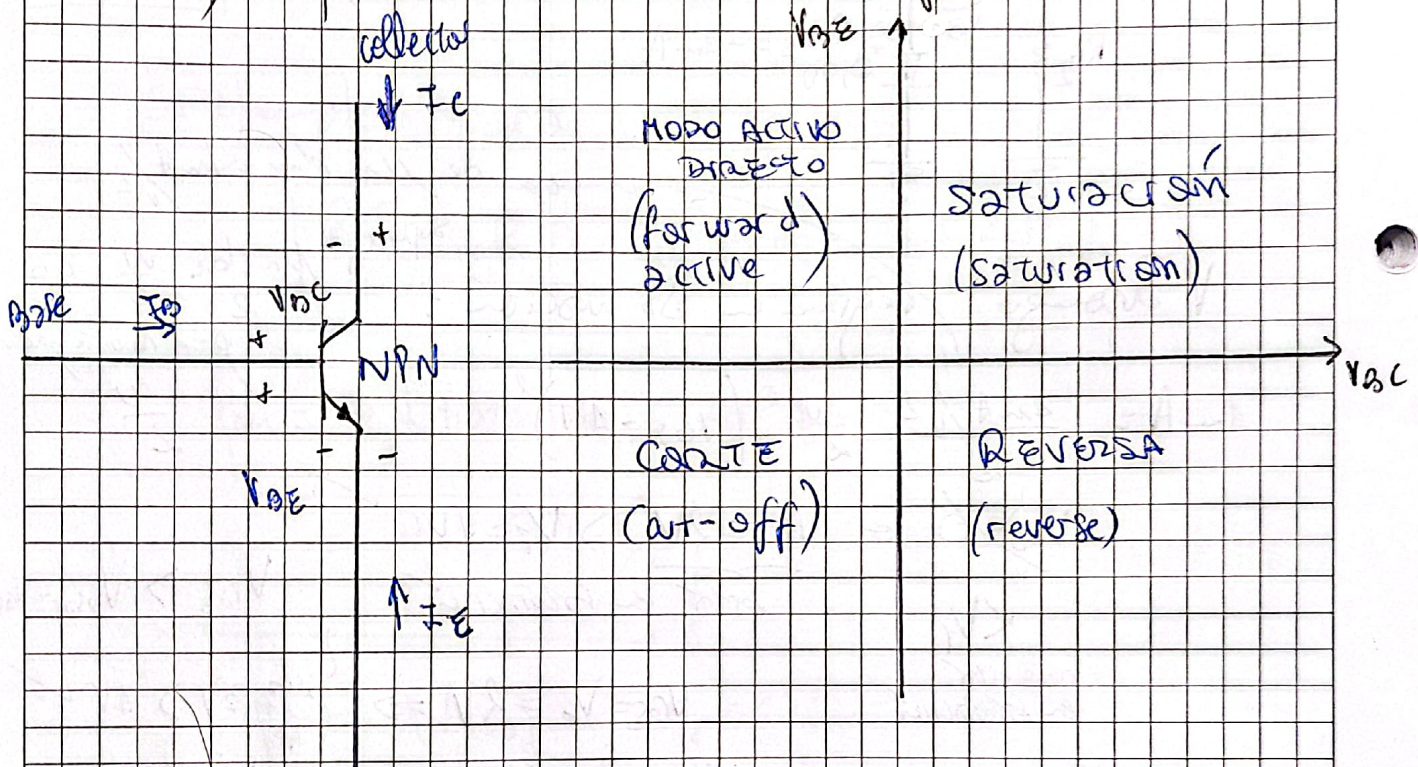 collector
↓ IC
- +
VBC
Base
IB
→
+
NPN
+
- -
VBE
↑ IE
VBE
MODO ACTIVO
DIRECTO
(forward
active)
Saturación
(saturation)
VBC
CORTE
(cut-off)
REVERSA
(reverse)